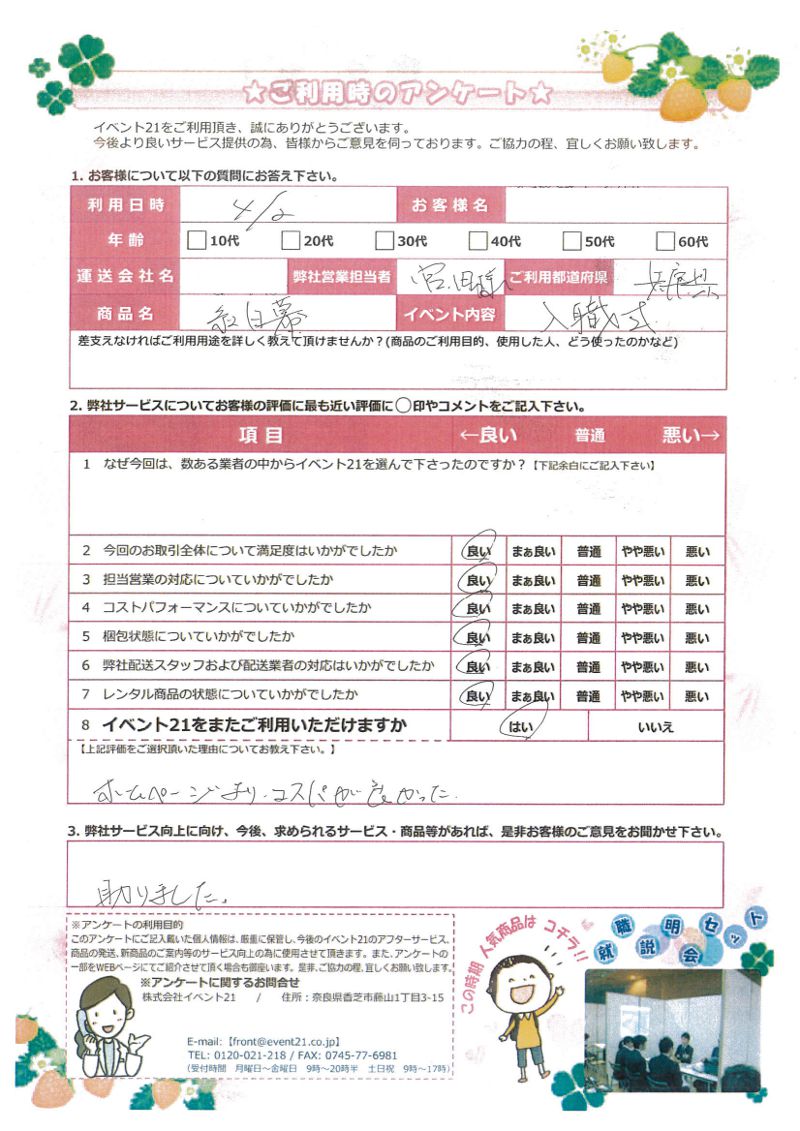 ★ご利用時のアンケート★
イベント21をご利用頂き、誠にありがとうございます。
今後より良いサービス提供の為、皆様からご意見を伺っております。ご協力の程、宜しくお願い致します。
1. お客様について以下の質問にお答え下さい。
利用日時 4/2 お客様名
年齢 10代 20代 30代 40代 50代 60代
運送会社名 弊社営業担当者 宮田様 ご利用都道府県 兵庫県
商品名 紅白幕 イベント内容 入職式
差支えなければご利用用途を詳しく教えて頂けませんか？(商品のご利用目的、使用した人、どう使ったのかなど)
2. 弊社サービスについてお客様の評価に最も近い評価に○印やコメントをご記入下さい。
項目 ←良い 普通 悪い→
1 なぜ今回は、数ある業者の中からイベント21を選んで下さったのですか？【下記余白にご記入下さい】
2 今回のお取引全体について満足度はいかがでしたか 良い まぁ良い 普通 やや悪い 悪い
3 担当営業の対応についていかがでしたか 良い まぁ良い 普通 やや悪い 悪い
4 コストパフォーマンスについていかがでしたか 良い まぁ良い 普通 やや悪い 悪い
5 梱包状態についていかがでしたか 良い まぁ良い 普通 やや悪い 悪い
6 弊社配送スタッフおよび配送業者の対応はいかがでしたか 良い まぁ良い 普通 やや悪い 悪い
7 レンタル商品の状態についていかがでしたか 良い まぁ良い 普通 やや悪い 悪い
8 イベント21をまたご利用いただけますか はい いいえ
【上記評価をご選択頂いた理由についてお教え下さい。】
ホームページより.コスパが良かった.
3. 弊社サービス向上に向け、今後、求められるサービス・商品等があれば、是非お客様のご意見をお聞かせ下さい。
助りました。
※アンケートの利用目的
このアンケートにご記入戴いた個人情報は、厳重に保管し、今後のイベント21のアフターサービス、
商品の発送、新商品のご案内等のサービス向上の為に使用させて頂きます。また、アンケートの
一部をWEBページにてご紹介させて頂く場合も御座います。是非、ご協力の程、宜しくお願い致します。
※アンケートに関するお問合せ
株式会社イベント21 / 住所：奈良県香芝市藤山1丁目3-15
E-mail:【front@event21.co.jp】
TEL: 0120-021-218 / FAX: 0745-77-6981
(受付時間 月曜日～金曜日 9時～20時半 土日祝 9時～17時)
この時期 人気商品は コチラ!!
就職説明会セット